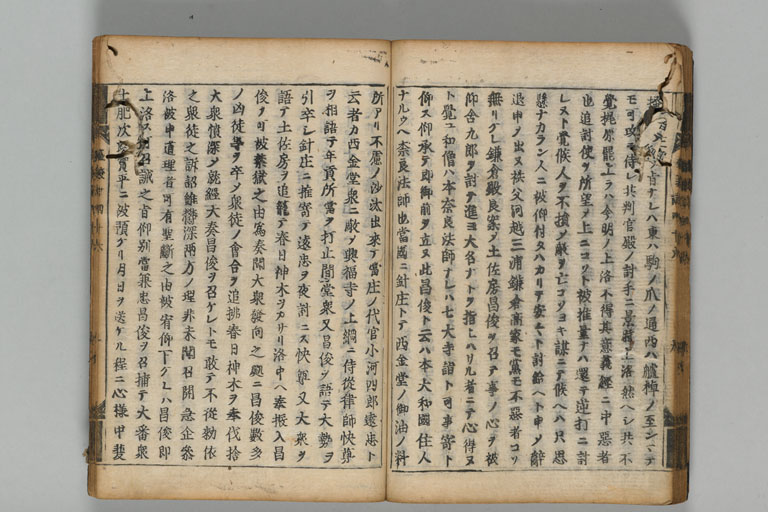 モ可攻ヽ侍レ北判官殿ノ討手ニ景時上洛然ヘシ共不
覺梶原罷上ラハ今明ノ上洛不得其意義經ニ中惡者
也追討使ヲ所望ノ上ニコソト被推量ナハ還テ逆打ニ討
レヌト覺候人ヲ不損ノ敵ヲ亡コソヨキ謀ニテ候ヘハ只思
懸ナカラン人ニ被仰付タハカリテ安々ト討給ヘト申ノ辭
退申ノ出ヌ秩父河越三浦鎌倉高家モ黨モ不惡者コソ
無リケレ鎌倉殿良案ノ土佐房昌俊ヲ召テ事ノ心ヲ被
仰含九郎ヲ討テ進ヨ大名ナトヲ指上ハハリル者ニテ心得ヌ
ト覺ユ和僧ハ本奈良法師ナレハ七大寺詣ト可事寄ト
仰ス仰承テ即御前ヲ立ヌ此昌俊ト云ハ本大和國住人
ナルウヘ奈良法師也當國ニ針庄トテ西金堂ノ御油ノ料
所アリ不慮ノ沙汰出來テ當庄ノ代官小河四郎遠忠ト
云者カ西金堂衆ニ敵ヲ興福寺ノ上綱ニ侍從律師快尊
ヲ相語テ年貢所當ヲ打止間堂衆又昌俊ヲ語テ大勢ヲ
引卒レ針庄ニ推寄テ遠忠ヲ夜討ニス快尊又大衆ヲ
語テ土佐房ヲ追籠テ春日神木ヲカサリ洛中ヘ奉振入昌
俊ヲ可被禁獄之由爲奏聞大衆縦向之處ニ昌俊數多
ノ凶徒ヲ卒ノ衆徒ノ會合ヲ追掃春日神木ヲ奉伐捨
大衆憤深ノ就經大奏昌俊ヲ召ケレトモ敢テ不從勅依
之衆徒之訴詔雖欝深兩方ノ理非未聞召開急企參
洛被申道理者可有聖斷之由被宥仰下ケレハ昌俊即
上洛ス
召誠之旨仰別當兼忠昌俊ヲ召捕テ大番衆
土肥次郎實平ニ被預ケリ月日ヲ送ケル程ニ心樣中斐